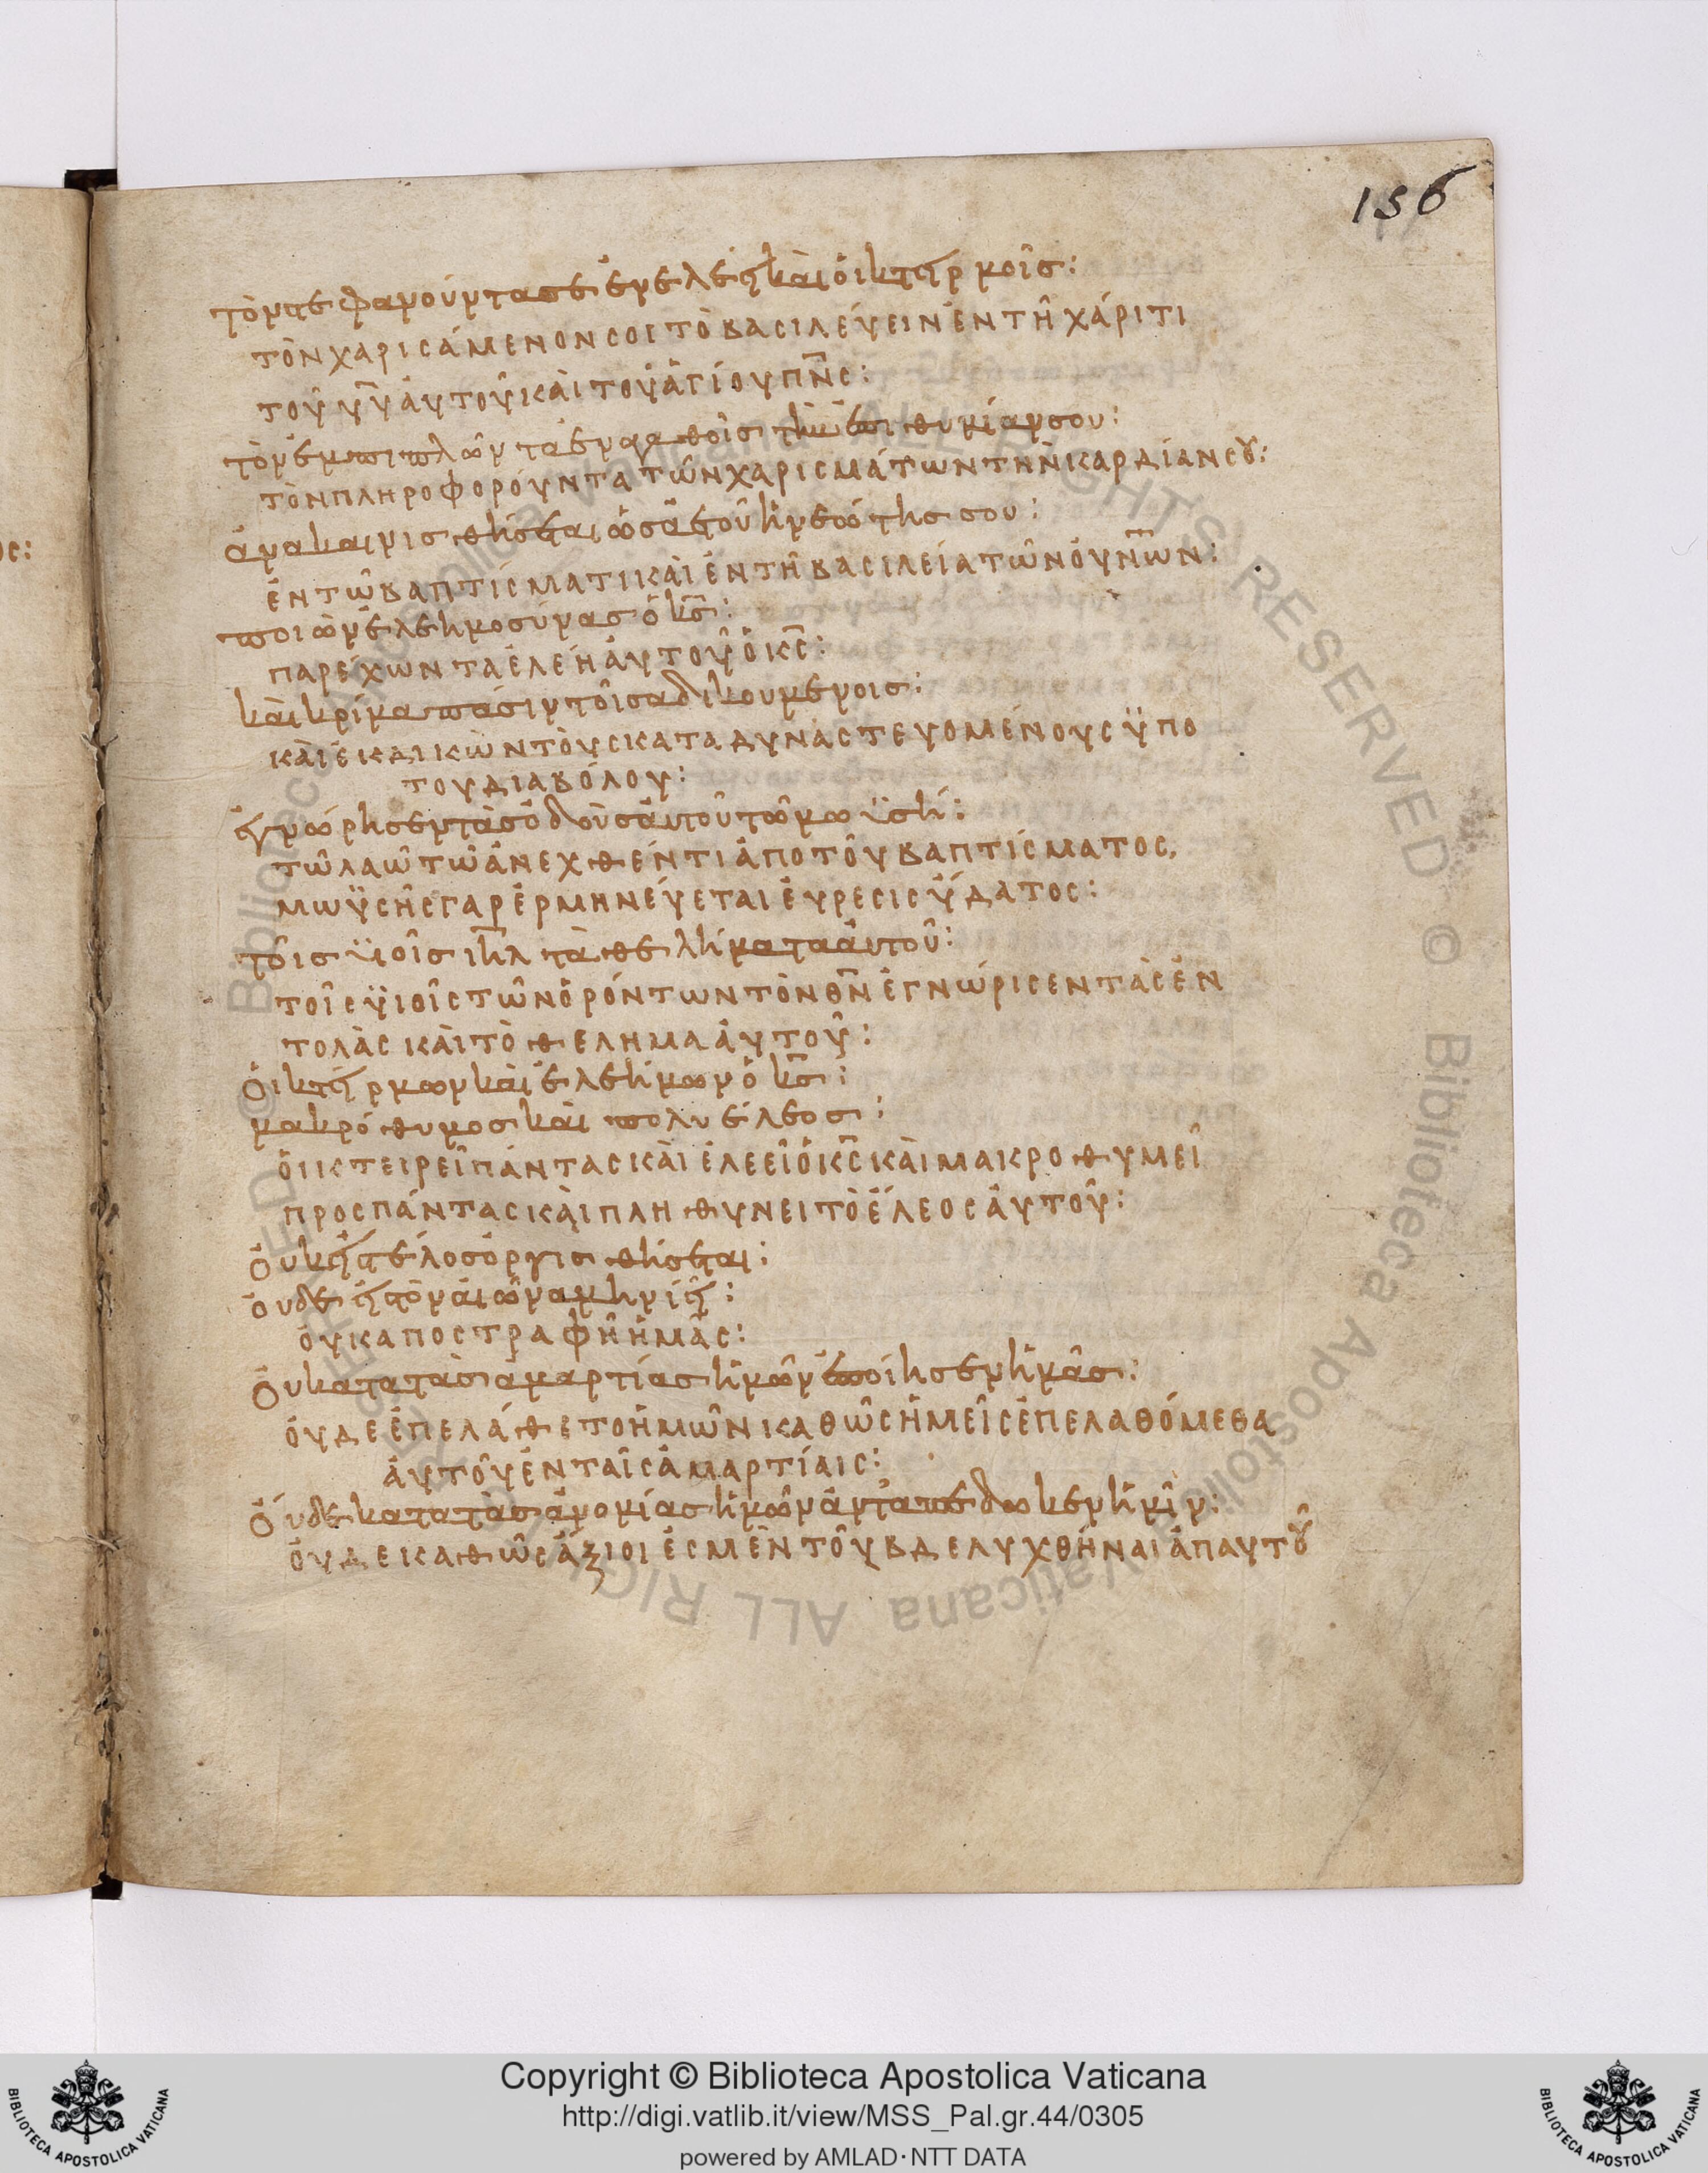 156
τὸν στεφανούντα σε ἐν ἐλέει καὶ ὀικτειρμοῖσ:
τὸν χαρισάμενον σοι τὸ βασιλεύειν ἐν τῆ χάριτι
τοῦ υ̅υ̅ ἀυτοῦ καὶ τοῦ ἁγίου π̅ν̅ς:
τὸν ἐμπιπλῶντα ἐν αγαθοῖσ τὴν ἐπιθυμίαν σου:
τὸν πληροφορόυντα τῶν χαρισμάτων τὴν καρδίαν σȣ:
ἀνακαινισθήσεται ὡσ ἀετοῦ ἡ νεότησ σου:
ἐν τῶ βαπτίσματι καὶ ἐν τῆ βασιλεία τῶν ὀυν̅ω̅ν:
ποιῶν ἐλεημοσύνασ ὁ κ̅σ̅:
παρέχων τὰ ἐλέη ἀυτοῦ ὁ κ̅ς̅:
καὶ κρίμα πάσιν τοῖσ αδικουμένοισ:
καὶ ἐκδικῶν τοὺς καταδυναστευομένους ϋπο
του διαβόλου:
ἐγνώρησεν τὰσ ὁδοὺσ ἀυτοῦ τῶ μωϋσῆ:
τῶ λαῶ τῶ ἀνεχθέντι ἀπο τοῦ βαπτίσματος,
μωϋσῆς γαρ ἑρμηνέυεται ἑύρεσις ὕδατος:
τοῖσ ϋιοῖσ ι̅η̅λ τὰ θελήματα ἀυτοῦ:
τοῖς ϋιοῖς τῶν ὁρόντων τὸν θ̅ν̅ ἐγνώρισεν τὰς ἐν
τολὰς καὶ τὸ θελημα ἀυτοῦ:
ὀικτείρμων καὶ ἐλεήμων ὁ κ̅σ̅:
μακρόθυμοσ καὶ πολυέλεοσ:
ὀικτειρεῖ πάντας καὶ ἐλεεῖ ὁ κ̅ς̅ καὶ μακροθυμεῖ
προς πάντας καὶ πληθυνει τὸ ἔλεος ἀυτοῦ:
ὀυκ εἰς τέλοσ ὀργισθήσεται:
ὀυδε εἰς τὸν ἀιῶνα μηνίει:
ὀυκ αποστραφῆ ἡμᾶς:
ὀυ κατα τὰσ αμαρτίασ ἡμῶν ἐποίησεν ἡμᾶσ:
ὀυδε ἐπελάθετο ἡμῶν καθῶς ἡμεῖς ἐπελαθόμεθα
ἀυτοῦ ἐν ταῖς ἁμαρτίαις:
ὀυδε κατα τὰσ ἀνομίασ ἡμῶν ἀνταπέδωκεν ἡμῖν:
ὀυδε καθῶς ἄξιοι ἐσμὲν τοῦ βδελυχθῆναι ἀπ αυτȣ͂
ος:
Copyright © Biblioteca Apostolica Vaticana
http://digi.vatlib.it/view/MSS_Pal.gr.44/0305
powered by AMLAD·NTT DATA
BIBLIOTECA APOSTOLICA VATICANA
BIBLIOTECA APOSTOLICA VATICANA